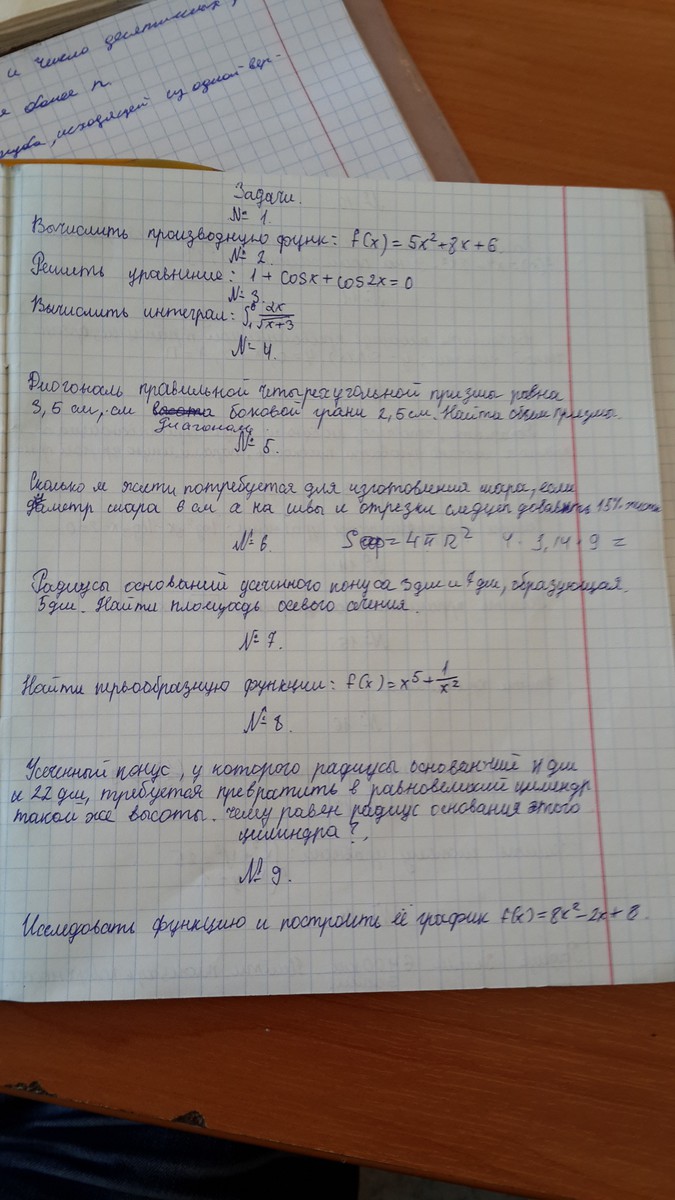 и число десятичных
более n.
исходящей из одной вер-
Задачи.
№ 1.
Вычислить производную функ: f(x) = 5x²+8x+6
№ 2.
Решить уравниние: 1 + cosx + cos2x = 0
№ 3.
Вычислить интеграл: ∫ 2x/√x+3
№ 4.
Диогональ правильной четырехугольной призмы равна
3,5 см, см боковой грани 2,5 см. Найти объем призмы.
диагональ
№ 5.
Сколько м жести потребуется для изготовления шара, если
диаметр шара 6 см а на швы и отрезки следует добавить 15% жести
№ 6 S = 4πR² 4 · 3,14 · 9 =
Радиусы оснований усеченного конуса 3 дм и 7 дм, образующая
5 дм. Найти площадь осевого сечения.
№ 7.
Найти первообразную функции: f(x) = x⁵ + 1/x²
№ 8.
Усеченный конус, у которого радиусы оснований дм
и 22 дм, требуется превратить в равновеликий цилиндр
такой же высоты. Чему равен радиус основания этого
цилиндра?
№ 9.
Исследовать функцию и построить её график f(x) = 8x² - 2x + 8.